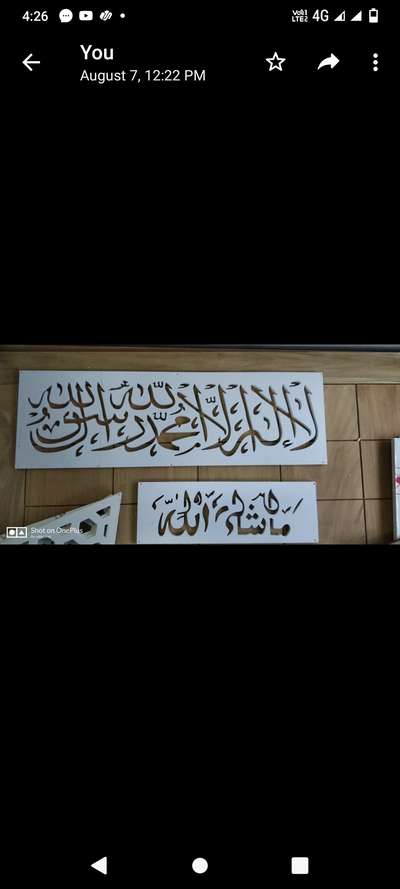 4:26
VoI1 LTE2 4G
You
August 7, 12:22 PM
لا إله إلا الله محمد رسول الله
ما شاء الله
Shot on OnePlus